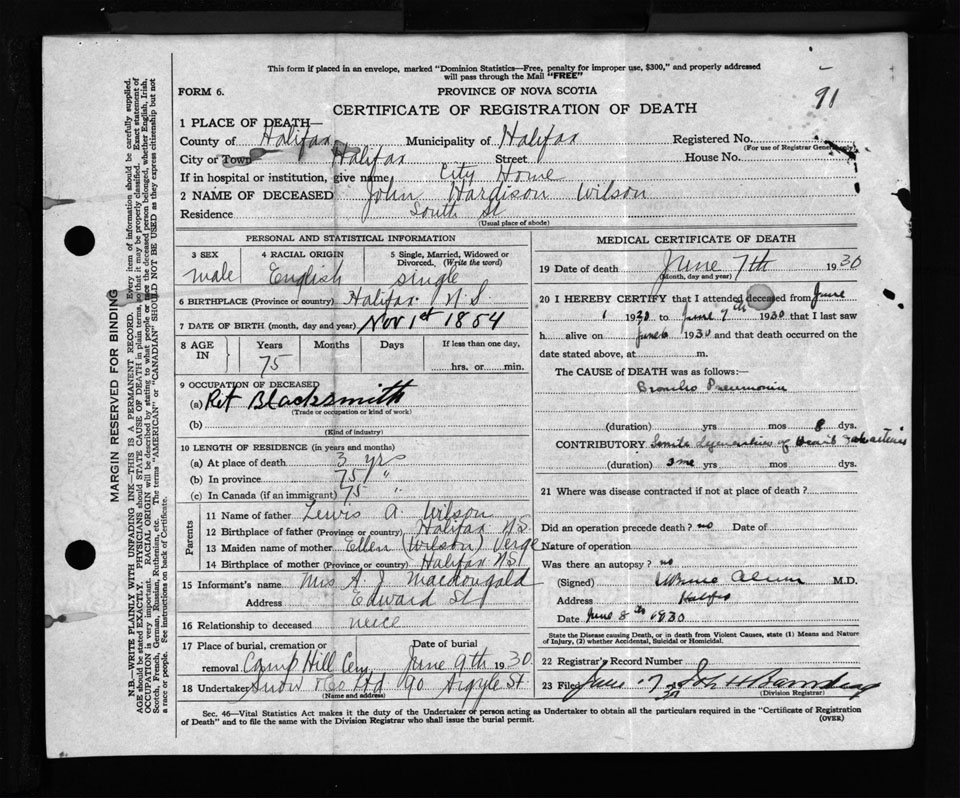 This form if placed in an envelope, marked "Dominion Statistics—Free, penalty for improper use, $300," and properly addressed
will pass through the Mail "FREE"
FORM 6.
PROVINCE OF NOVA SCOTIA
91
CERTIFICATE OF REGISTRATION OF DEATH
1 PLACE OF DEATH—
County of Halifax Municipality of Halifax Registered No.
(For use of Registrar General only)
City or Town Halifax Street House No.
If in hospital or institution, give name City Home
2 NAME OF DECEASED John Hardison Wilson
Residence South St
(Usual place of abode)
PERSONAL AND STATISTICAL INFORMATION
3 SEX 4 RACIAL ORIGIN 5 Single, Married, Widowed or
Divorced. (Write the word)
male English single
6 BIRTHPLACE (Province or country) Halifax N.S.
7 DATE OF BIRTH (month, day and year) Nov 1st 1854
8 AGE IN Years Months Days If less than one day,
75 hrs. or min.
9 OCCUPATION OF DECEASED
(a) Ret Blacksmith
(Trade or occupation or kind of work)
(b)
(Kind of industry)
10 LENGTH OF RESIDENCE (in years and months)
(a) At place of death 3 yrs
(b) In province 75 "
(c) In Canada (if an immigrant) 75 "
Parents
11 Name of father Lewis A. Wilson
12 Birthplace of father (Province or country) Halifax N.S.
13 Maiden name of mother Ellen (Wilson) Verge
14 Birthplace of mother (Province or country) Halifax N.S.
15 Informant's name Mrs A. J. Macdougald
Address Edward St
16 Relationship to deceased neice
17 Place of burial, cremation or Date of burial
removal Camp Hill Cem. June 9th 1930.
18 Undertaker Snow & Co Ltd 90 Argyle St
(Name and address)
MEDICAL CERTIFICATE OF DEATH
19 Date of death June 7th 1930
(Month, day and year)
20 I HEREBY CERTIFY that I attended deceased from June
1 1930 to June 7th 1930 that I last saw
h alive on June 6 1930 and that death occurred on the
date stated above, at m.
The CAUSE of DEATH was as follows:—
Broncho Pneumonia
(duration) yrs mos 8 dys.
CONTRIBUTORY Senile degeneration of Heart & arteries
(duration) some yrs mos dys.
21 Where was disease contracted if not at place of death?
Did an operation precede death? no Date of
Nature of operation
Was there an autopsy? no
(Signed) M.D.
Address Halifax
Date June 8th 1930
State the Disease Causing Death, or in death from Violent Causes, state (1) Means and Nature
of Injury, (2) whether Accidental, Suicidal or Homicidal.
22 Registrar's Record Number
23 Filed June 17 1930 John H
(Division Registrar)
Sec. 46—Vital Statistics Act makes it the duty of the Undertaker or person acting as Undertaker to obtain all the particulars required in the "Certificate of Registration
of Death" and to file the same with the Division Registrar who shall issue the burial permit.
(OVER)
MARGIN RESERVED FOR BINDING
N.B.—WRITE PLAINLY WITH UNFADING INK—THIS IS A PERMANENT RECORD. Every item of information should be carefully supplied.
AGE should be stated EXACTLY. PHYSICIANS should STATE CAUSE OF DEATH in plain terms, so that it may be properly classified. Exact statement of
OCCUPATION is very important. RACIAL ORIGIN will be described by stating to what people or race the deceased person belonged, whether English, Irish,
Scotch, French, German, Russian, Ruthenian, etc. The terms "AMERICAN" or "CANADIAN" SHOULD NOT BE USED as they express citizenship but not
a race or people. See instructions on back of Certificate.